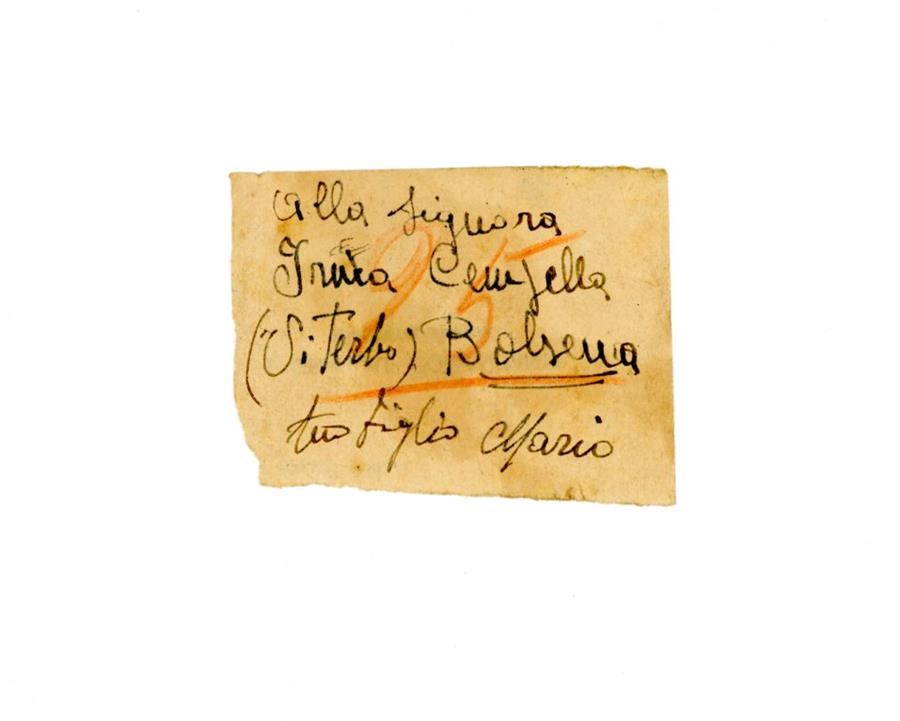 Alla Signora
Irma Cenzella
25
(Viterbo) Bolsena
tuo figlio Mario